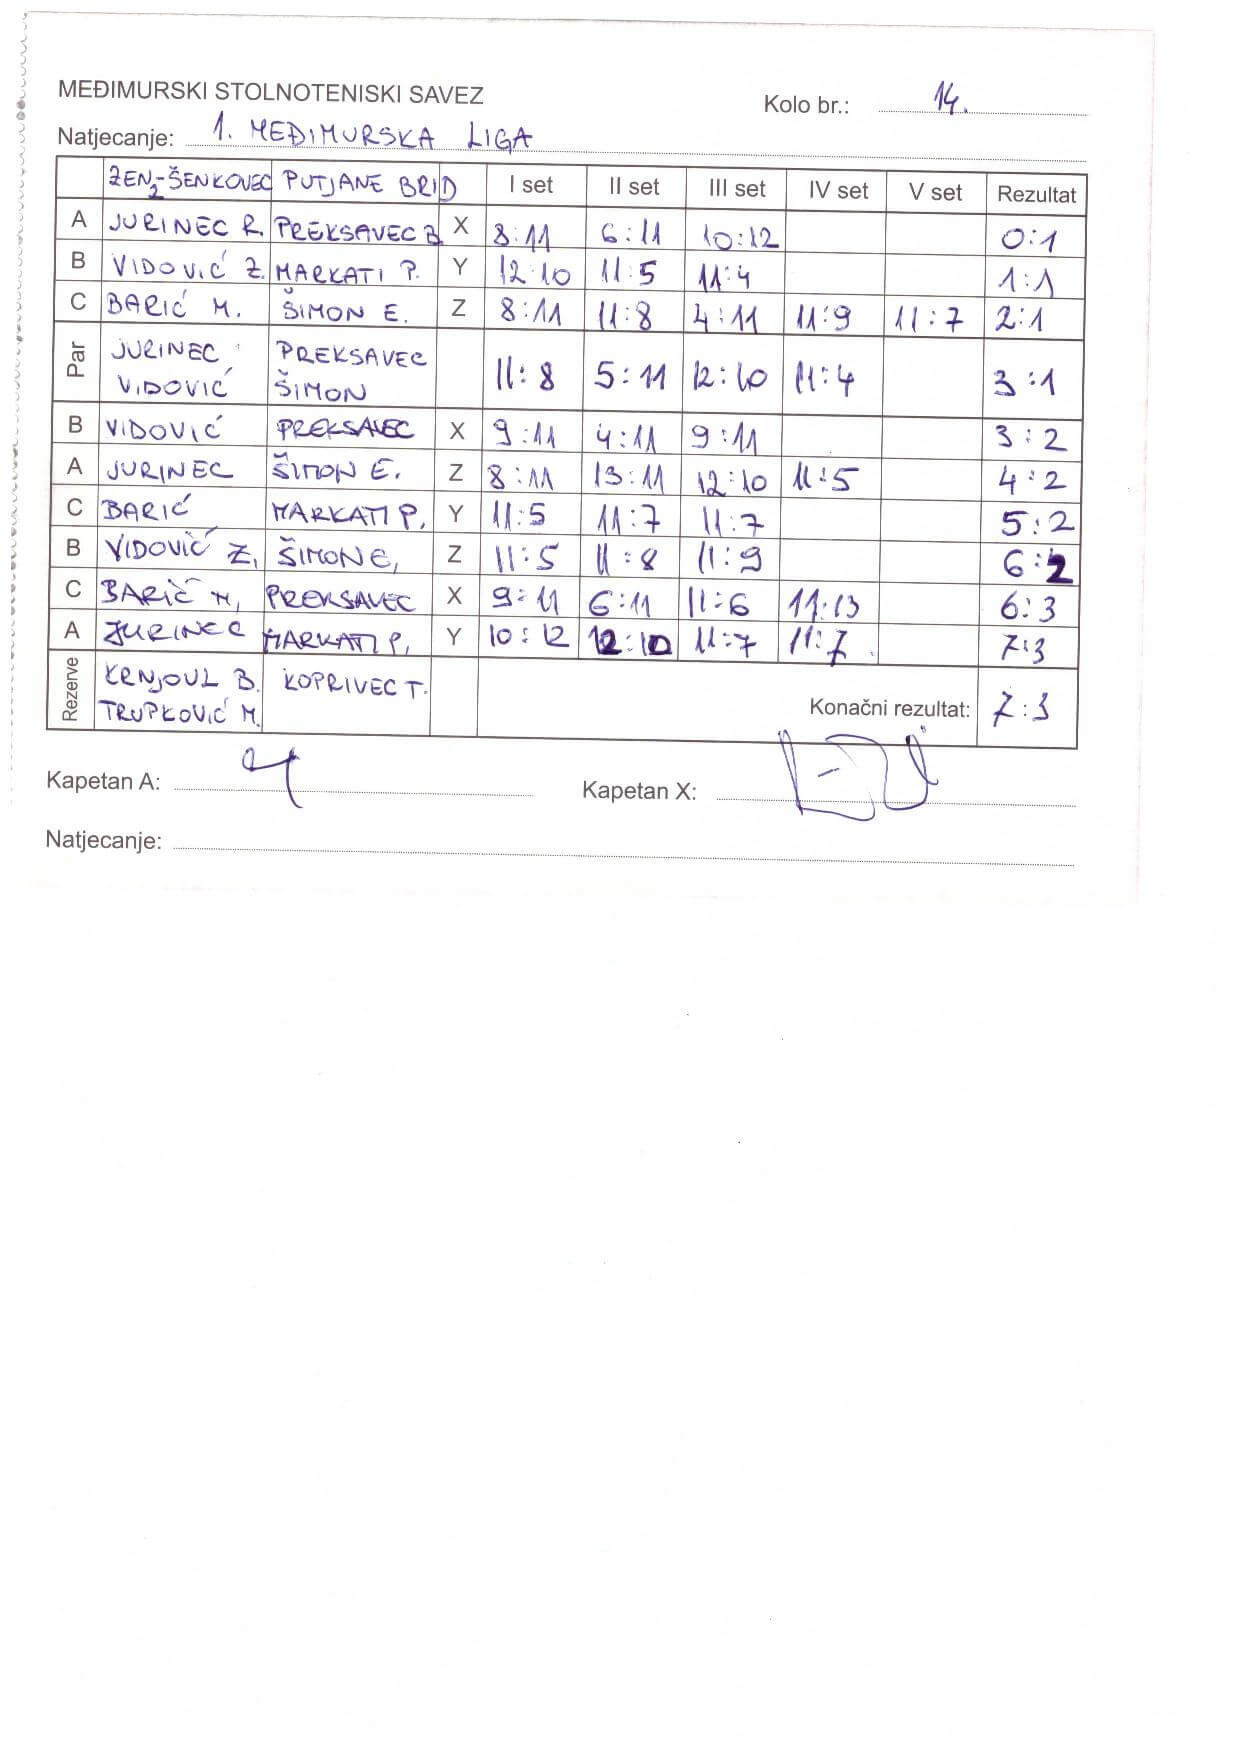 MEĐIMURSKI STOLNOTENISKI SAVEZ
Kolo br.: 14.
Natjecanje: 1. MEĐIMURSKA LIGA
ZEN2-ŠENKOVEC PUTJANE BRID I set II set III set IV set V set Rezultat
A JURINEC R. PREKSAVEC B X 8:11 6:11 10:12 0:1
B VIDOVIĆ Z. MARKATI P. Y 12:10 11:5 11:4 1:1
C BARIĆ M. ŠIMON E. Z 8:11 11:8 4:11 11:9 11:7 2:1
Par JURINEC PREKSAVEC
VIDOVIĆ ŠIMON 11:8 5:11 12:10 11:4 3:1
B VIDOVIĆ PREKSAVEC X 9:11 4:11 9:11 3:2
A JURINEC ŠIMON E. Z 8:11 13:11 12:10 11:5 4:2
C BARIĆ MARKATI P. Y 11:5 11:7 11:7 5:2
B VIDOVIĆ Z. ŠIMON E, Z 11:5 11:8 11:9 6:2
C BARIČ M, PREKSAVEC X 9:11 6:11 11:6 11:13 6:3
A JURINEC MARKATI P, Y 10:12 12:10 11:7 11:7 7:3
Rezerve B. KOPRIVEC T.
TRUPKOVIĆ M.
Konačni rezultat: 7:3
Kapetan A: Kapetan X:
Natjecanje: